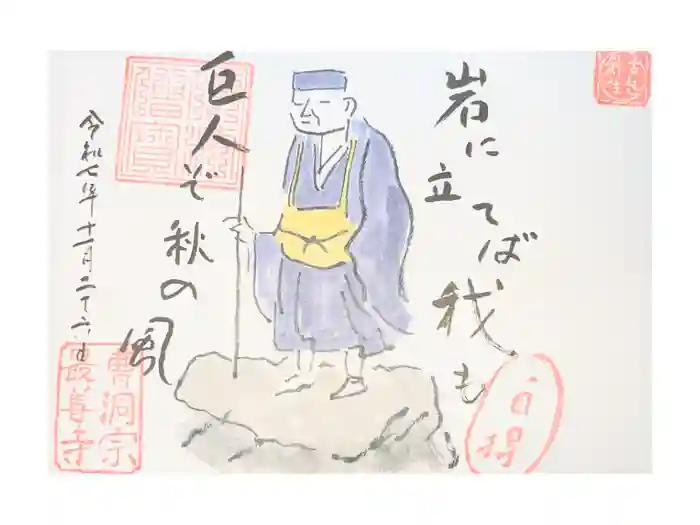 岩に
立てば
我も
巨人ぞ
秋の風
令和七年十一月二十六日
曹洞宗
最善寺